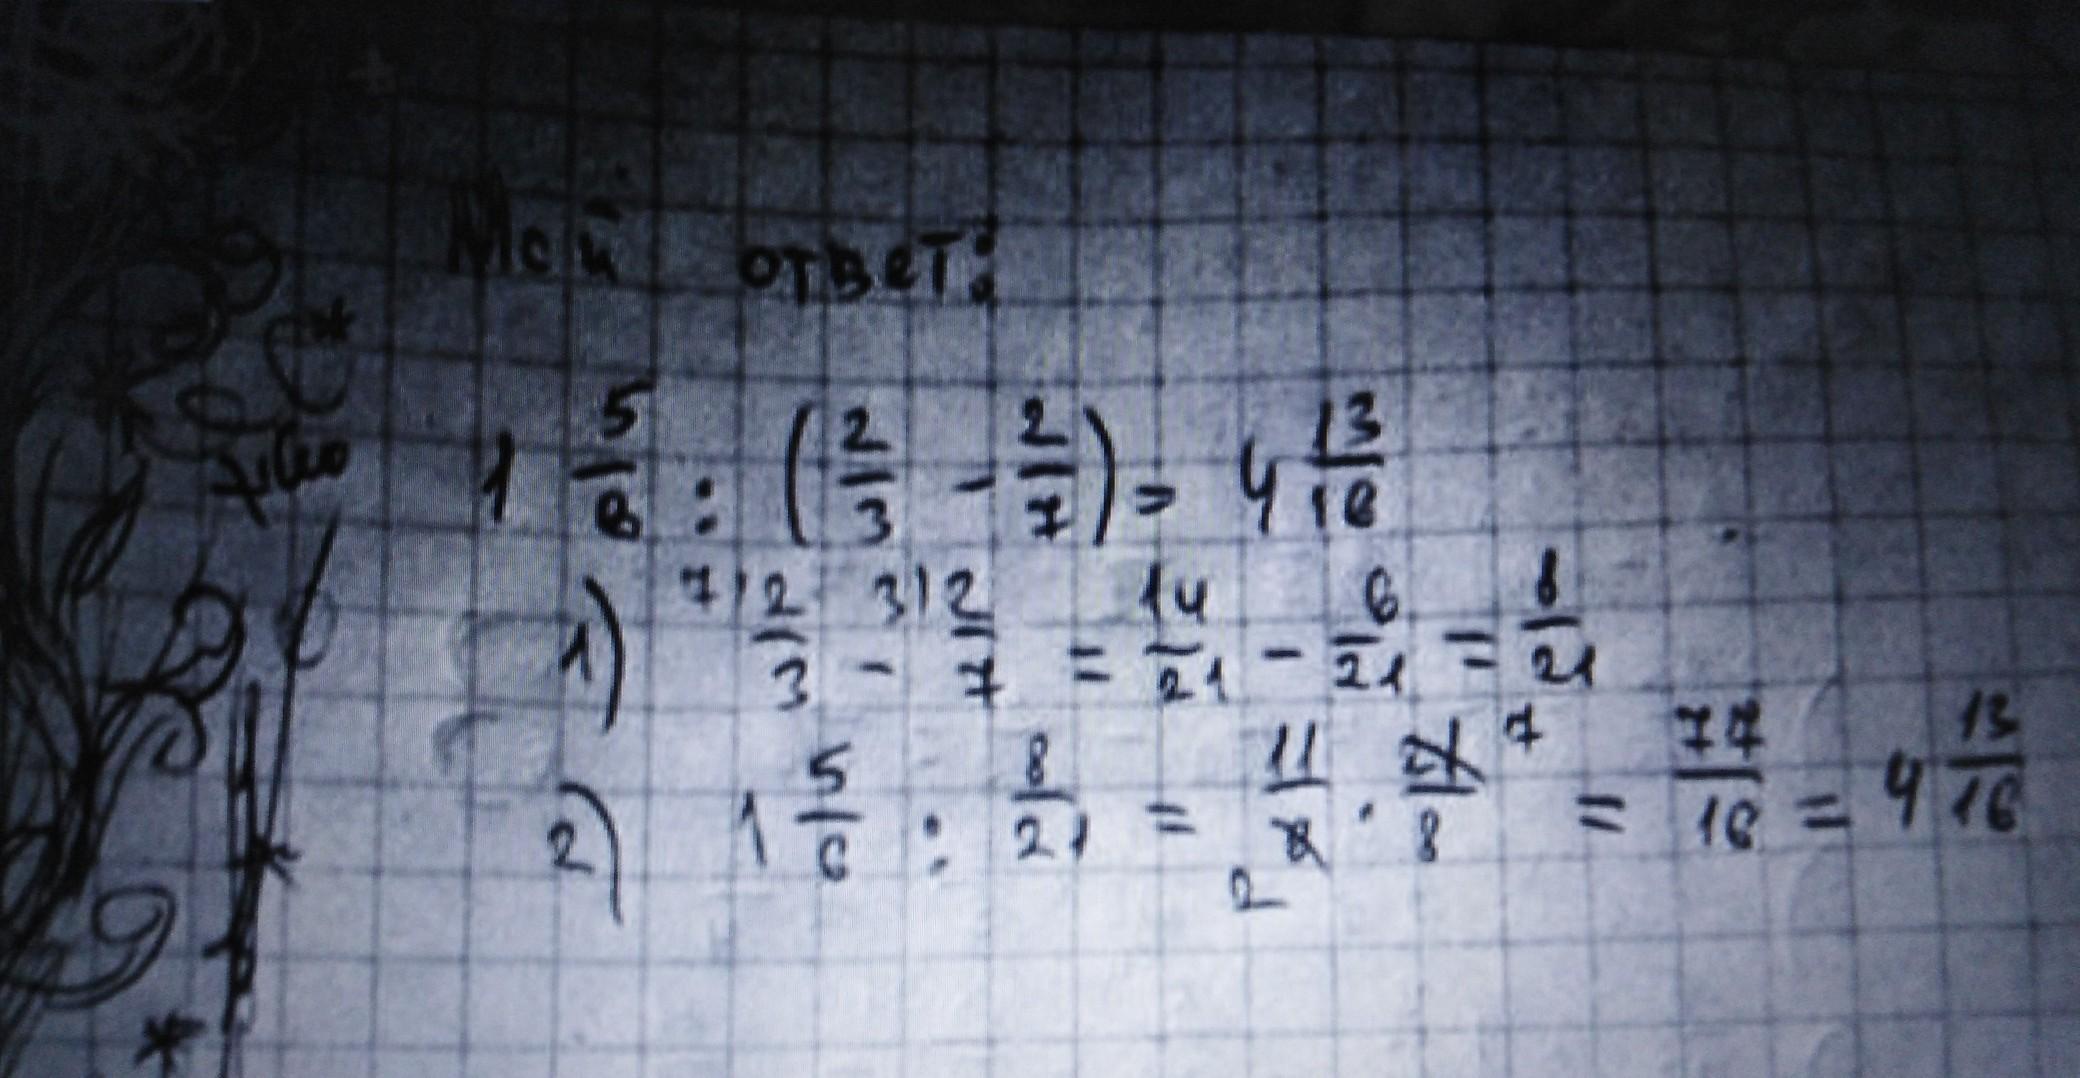 Мой ответ:
1 5/6 : (2/3 - 2/7) = 4 13/16
1) 7)2/3 - 3)2/7 = 14/21 - 6/21 = 8/21
2) 1 5/6 : 8/21 = 11/6 2 · 21/8 7 = 77/16 = 4 13/16